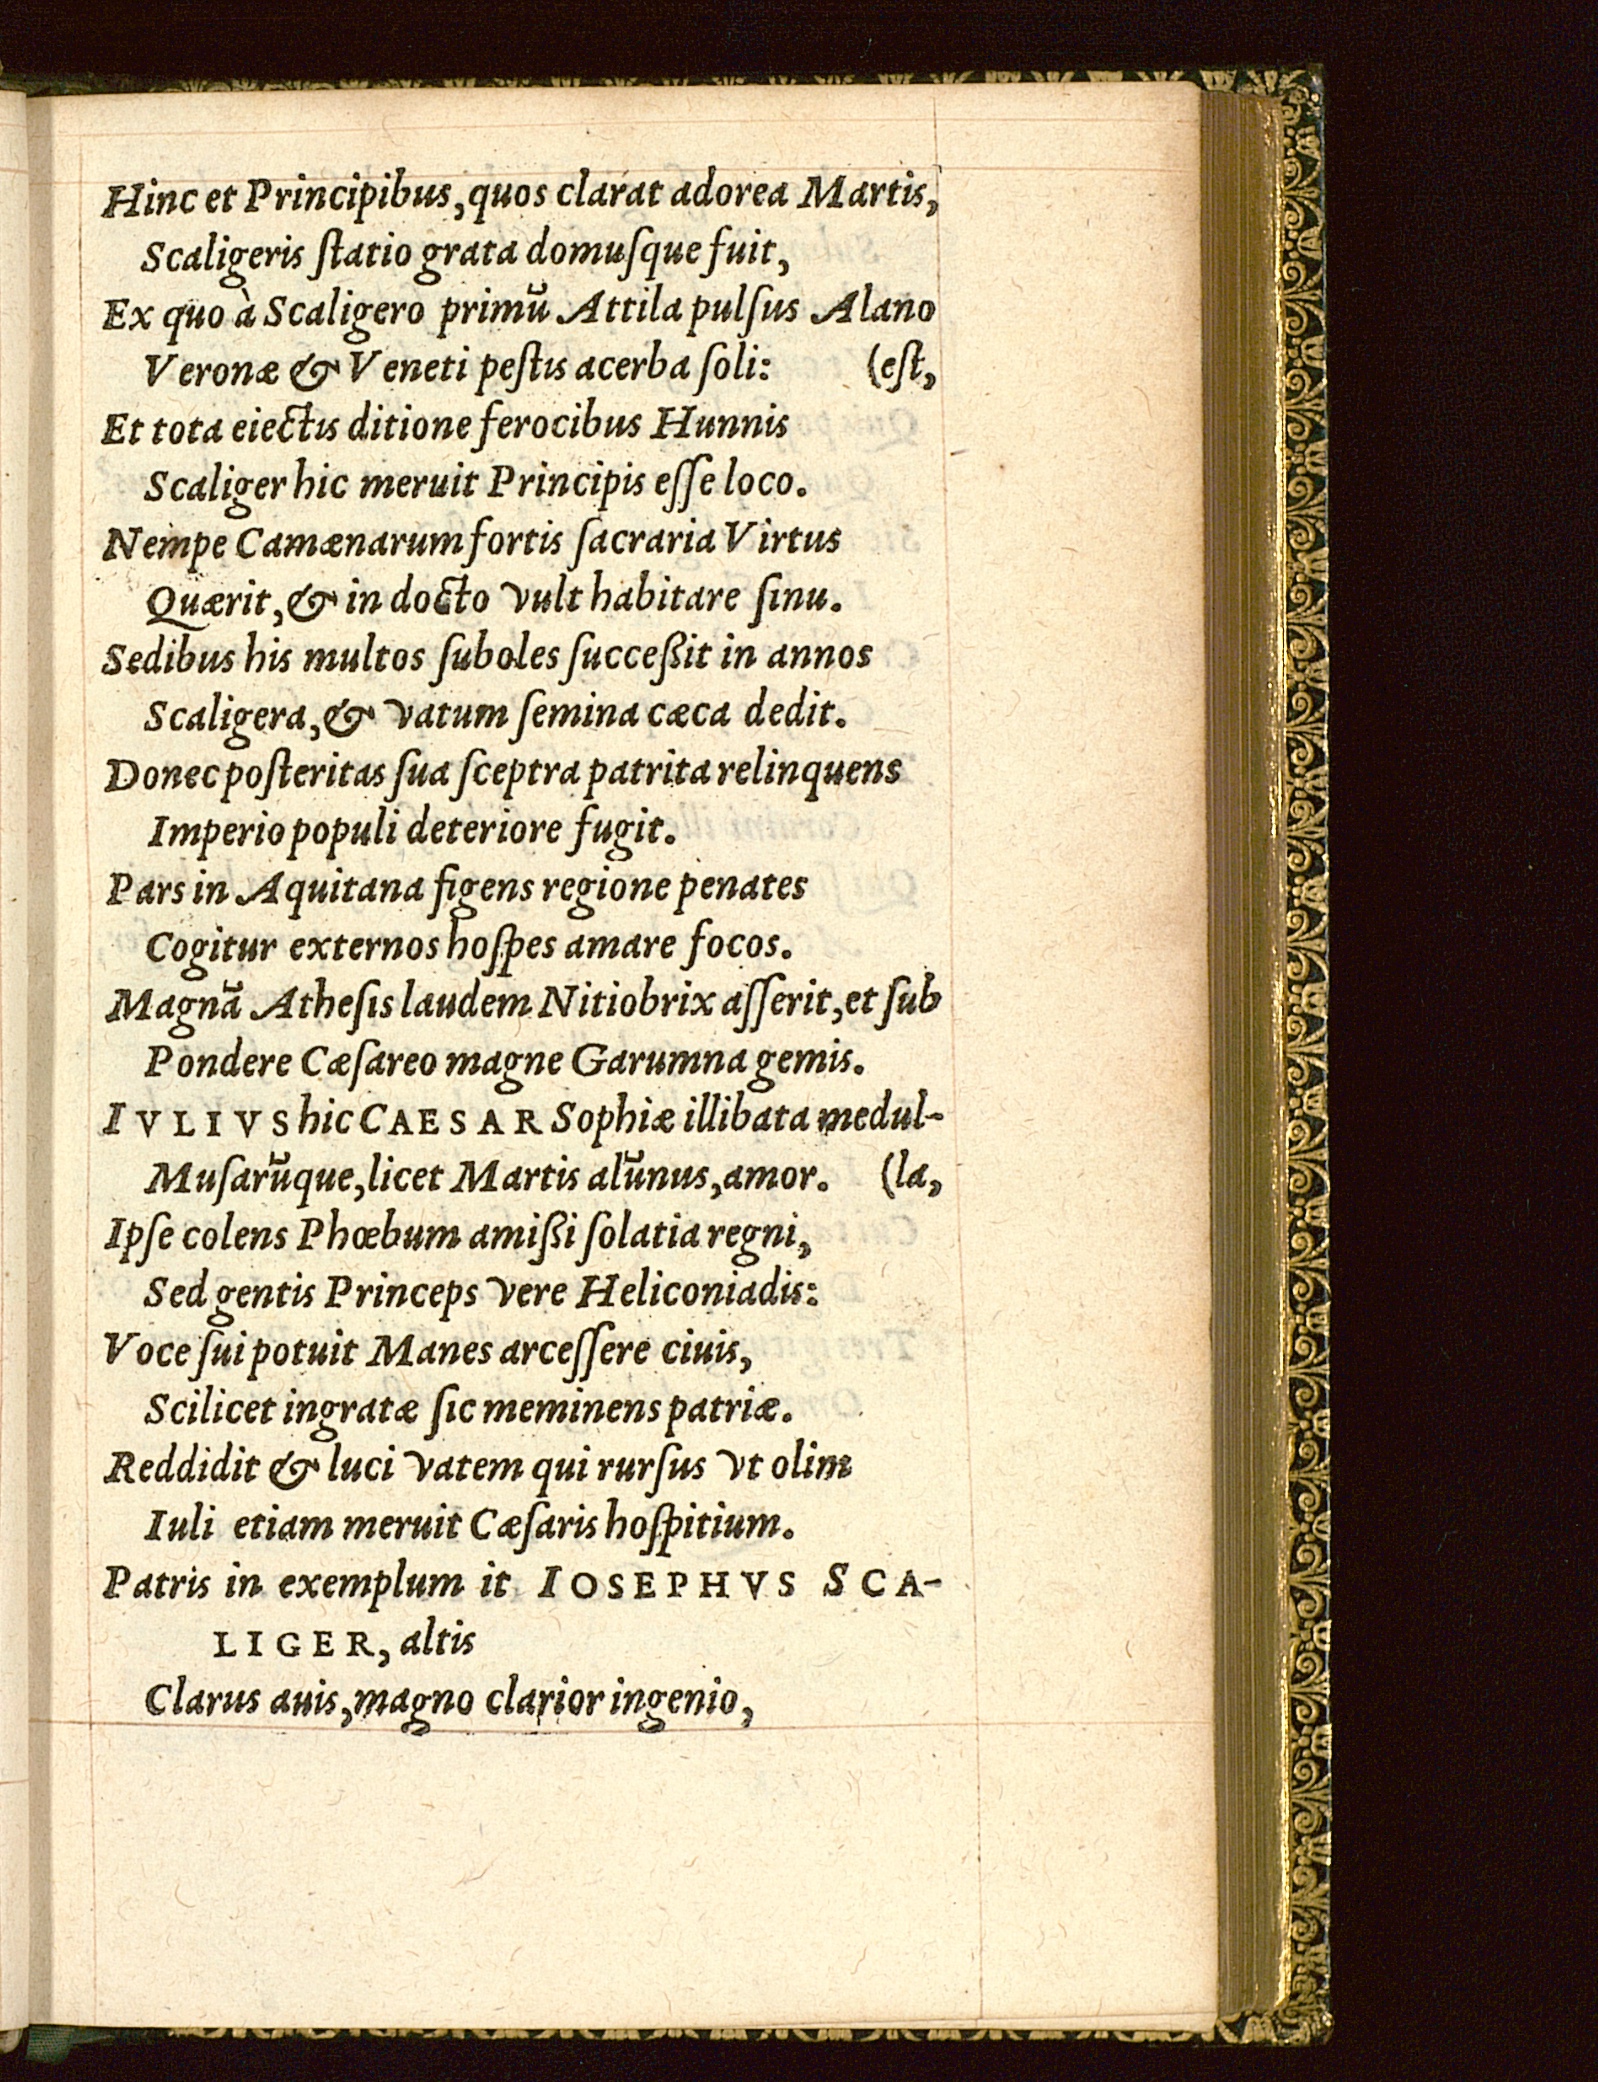 Hinc et Principibus, quos clarat adorea Martis,
Scaligeris ſtatio grata domuſque fuit,
Ex quo à Scaligero primũ Attila pulſus Alano
Veronæ & Veneti peſtis acerba ſoli: (eſt,
Et tota eiectis ditione ferocibus Hunnis
Scaliger hic meruit Principis eſſe loco.
Nempe Camænarum fortis ſacraria Virtus
Quærit, & in docto vult habitare ſinu.
Sedibus his multos ſuboles ſucceßit in annos
Scaligera, & vatum ſemina cæca dedit.
Donec poſteritas ſua ſceptra patrita relinquens
Imperio populi deteriore fugit.
Pars in Aquitana figens regione penates
Cogitur externos hoſpes amare focos.
Magnã Atheſis laudem Nitiobrix aſſerit, et ſub
Pondere Cæſareo magne Garumna gemis.
IVLIVS hic CAESAR Sophiæ illibata medul-
Muſarũque, licet Martis alũnus, amor. (la,
Ipſe colens Phœbum amißi ſolatia regni,
Sed gentis Princeps vere Heliconiadis:
Voce ſui potuit Manes arceſſere ciuis,
Scilicet ingratæ ſic meminens patriæ.
Reddidit & luci vatem qui rurſus vt olim
Iuli etiam meruit Cæſaris hoſpitium.
Patris in exemplum it IOSEPHVS SCA-
LIGER, altis
Clarus auis, magno clarior ingenio,